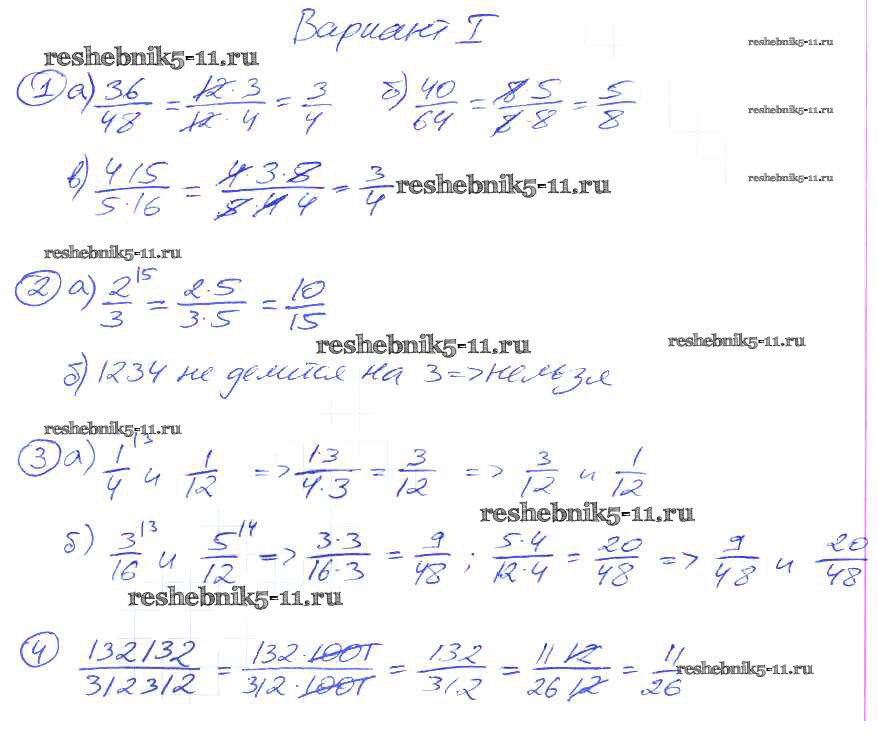 Вариант I
reshebnik5-11.ru
reshebnik5-11.ru
① а) 36/48 = 12·3/12·4 = 3/4 б) 40/64 = 8·5/8·8 = 5/8
reshebnik5-11.ru
в) 4·15/5·16 = 4·3·5/5·4·4 = 3/4
reshebnik5-11.ru
reshebnik5-11.ru
reshebnik5-11.ru
② а) 2/3 ^15 = 2·5/3·5 = 10/15
reshebnik5-11.ru
reshebnik5-11.ru
б) 1234 не делится на 3 => нельзя
reshebnik5-11.ru
③ а) 1/4 ^13 и 1/12 => 1·3/4·3 = 3/12 => 3/12 и 1/12
reshebnik5-11.ru
б) 3/16 ^13 и 5/12 ^14 => 3·3/16·3 = 9/48 ; 5·4/12·4 = 20/48 => 9/48 и 20/48
reshebnik5-11.ru
④ 132132/312312 = 132·1001/312·1001 = 132/312 = 11·12/26·12 = 11/26
reshebnik5-11.ru